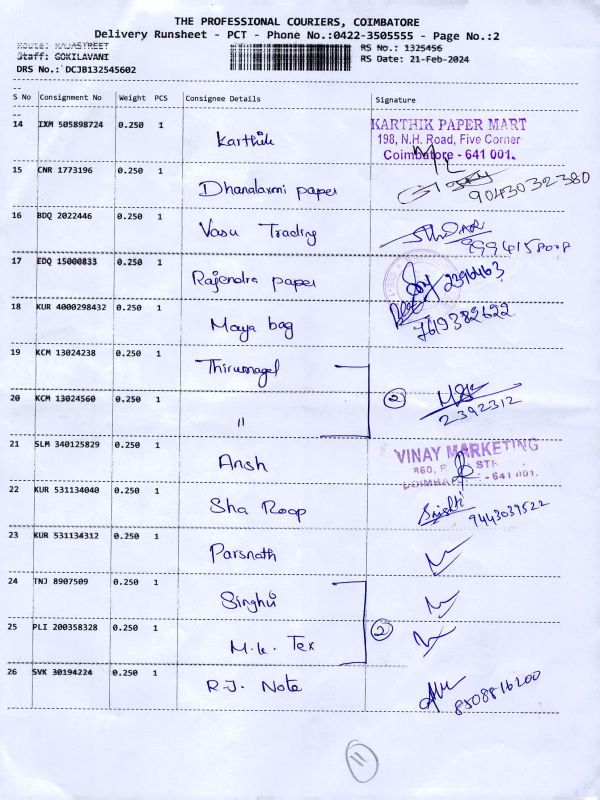 THE PROFESSIONAL COURIERS, COIMBATORE
Delivery Runsheet - PCT - Phone No.:0422-3505555 - Page No.:2
Route: RAJASTREET
Staff: GOKILAVANI
DRS No.: DCJB132545602
RS No.: 1325456
RS Date: 21-Feb-2024
S No Consignment No Weight PCS Consignee Details Signature
14 IXM 505898724 0.250 1 Karthik
KARTHIK PAPER MART
198, N.H. Road, Five Corner
Coimbatore - 641 001.
15 CNR 1773196 0.250 1 Dhanalaxmi paper 9043032380
16 BDQ 2022446 0.250 1 Vasu Trading 9994158008
17 EDQ 15000833 0.250 1 Rajendra paper 2396463
18 KUR 4000298432 0.250 1 Maya bag 7619382622
19 KCM 13024238 0.250 1 Thirumagal
20 KCM 13024560 0.250 1 " 2 2392312
21 SLM 340125829 0.250 1 Ansh
VINAY MARKETING
22 KUR 531134040 0.250 1 Sha Roop Srishti 9443039522
23 KUR 531134312 0.250 1 Parsnath
24 TNJ 8907509 0.250 1 Singhvi
25 PLI 200358328 0.250 1 M.K. Tex 2
26 SVK 30194224 0.250 1 R.J. Note 8508816200
11